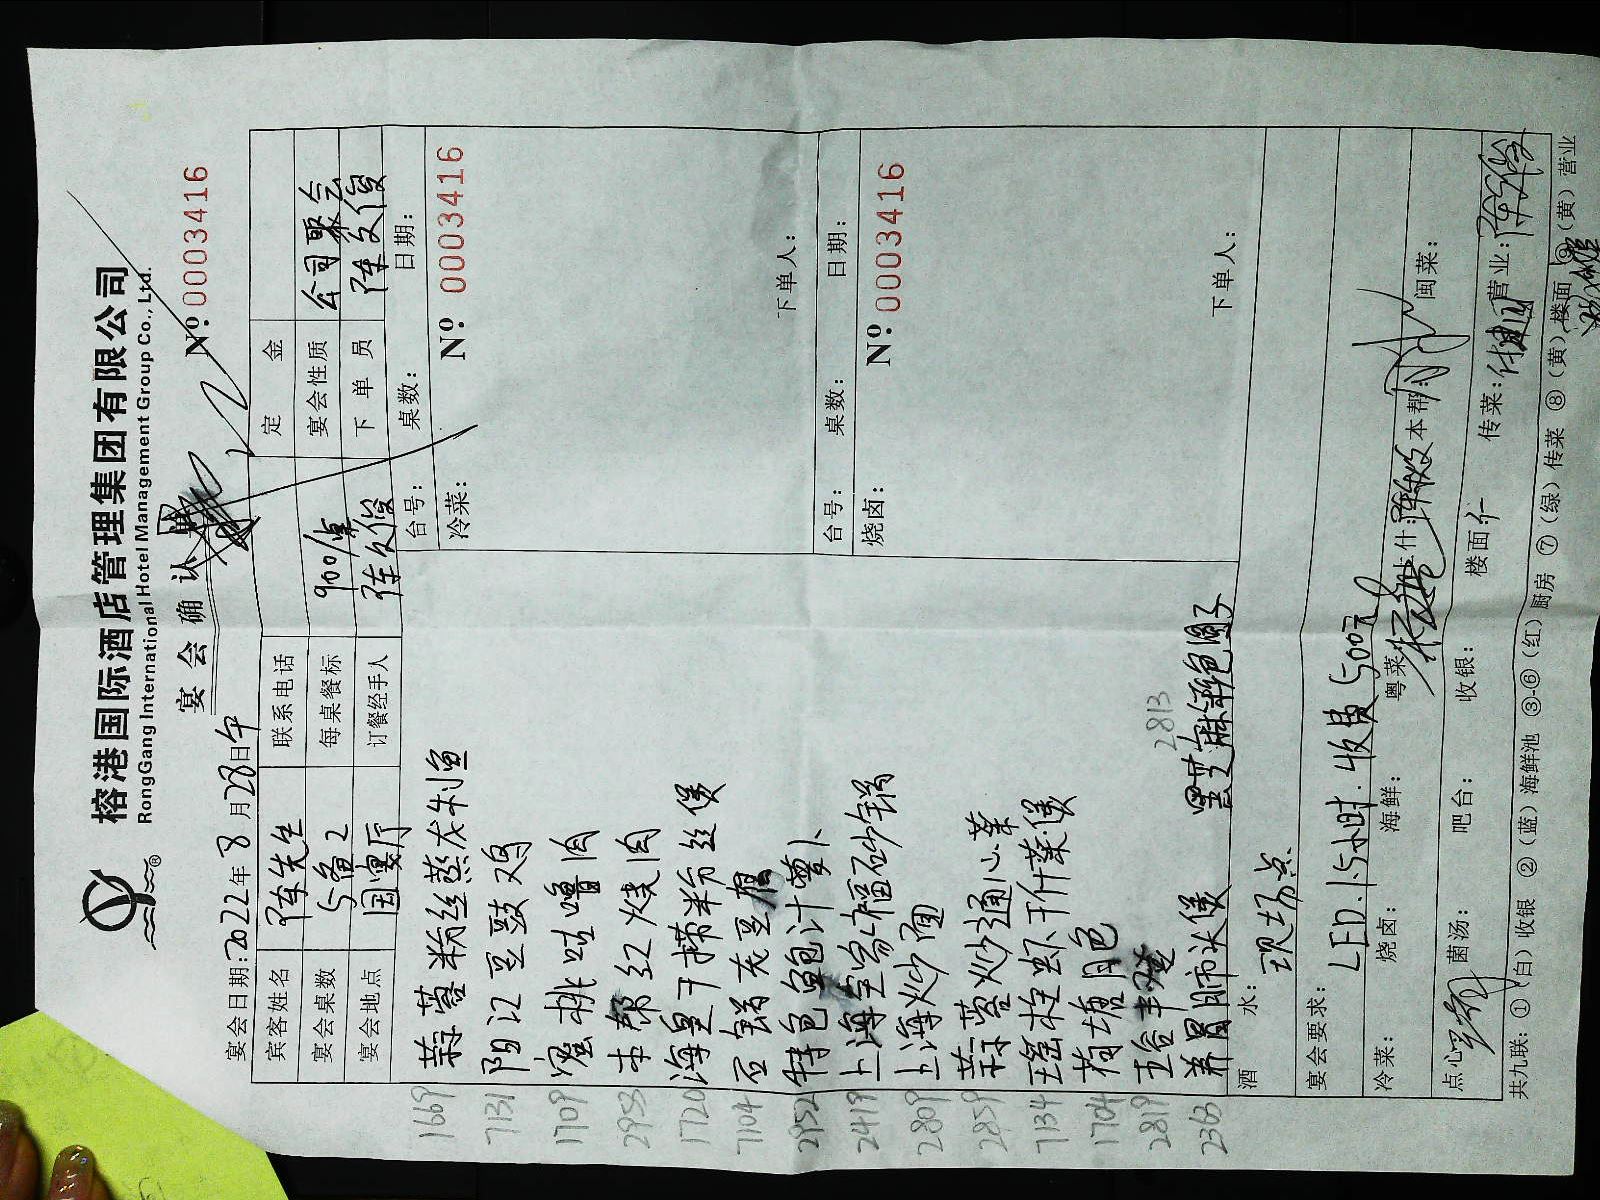 榕港国际酒店管理集团有限公司
RongGang International Hotel Management Group Co., Ltd.
宴会确认
Nº 0003416
宴会日期: 2022年8月28日午
宾客姓名 陈先生 联系电话 定金
宴会桌数 5备2 每桌餐标 900/桌 宴会性质 公司聚会
宴会地点 国宴厅 订餐经手人 陈文俊 下单员 陈文俊
1669 蒜蓉粉丝蒸龙利鱼
7131 阳江豆豉鸡
1709 蜜桃咕噜肉
2953 本帮红烧肉
1720 海皇干捞粉丝煲
7104 石锅老豆腐
2952 特色鲍汁萝卜
2419 上海全家福砂锅
2809 上海炒面
2859 蒜蓉炒通心菜
7134 瑶柱虾干什菜煲
1704 荷塘月色
2819 五谷丰登
2363 养胃肺头煲
2813 黑芝麻彩色圆子
台号: 桌数: 日期:
冷菜: Nº 0003416
下单人:
台号: 桌数: 日期:
烧卤: Nº 0003416
下单人:
酒水: 现场点
宴会要求: LED.1.5小时.收费500元
冷菜: 烧卤: 海鲜: 粤菜 上什: 本帮: 闽菜:
点心 菌汤: 吧台: 收银: 楼面 传菜: 营业:
共九联: ①(白)收银 ②(蓝)海鲜池 ③-⑥(红)厨房 ⑦(绿)传菜 ⑧(黄)楼面 ⑨(黄)营业